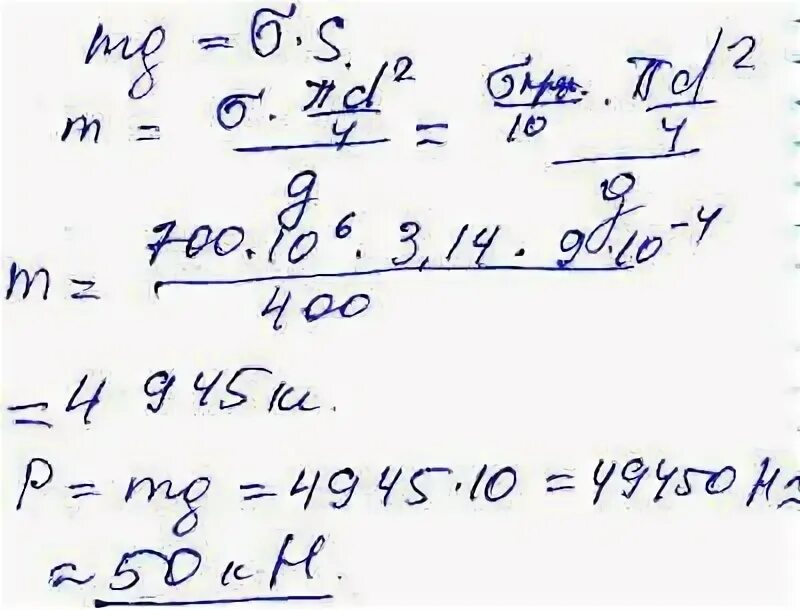 mg = σ·S.
m = σ · πd²/4 / g = σпч/10 · πd²/4 / g
m = 700·10⁶ · 3,14 · 9·10⁻⁴ / 400
= 4 945 кг.
P = mg = 4945·10 = 49450 Н ≈
≈ 50 кН.